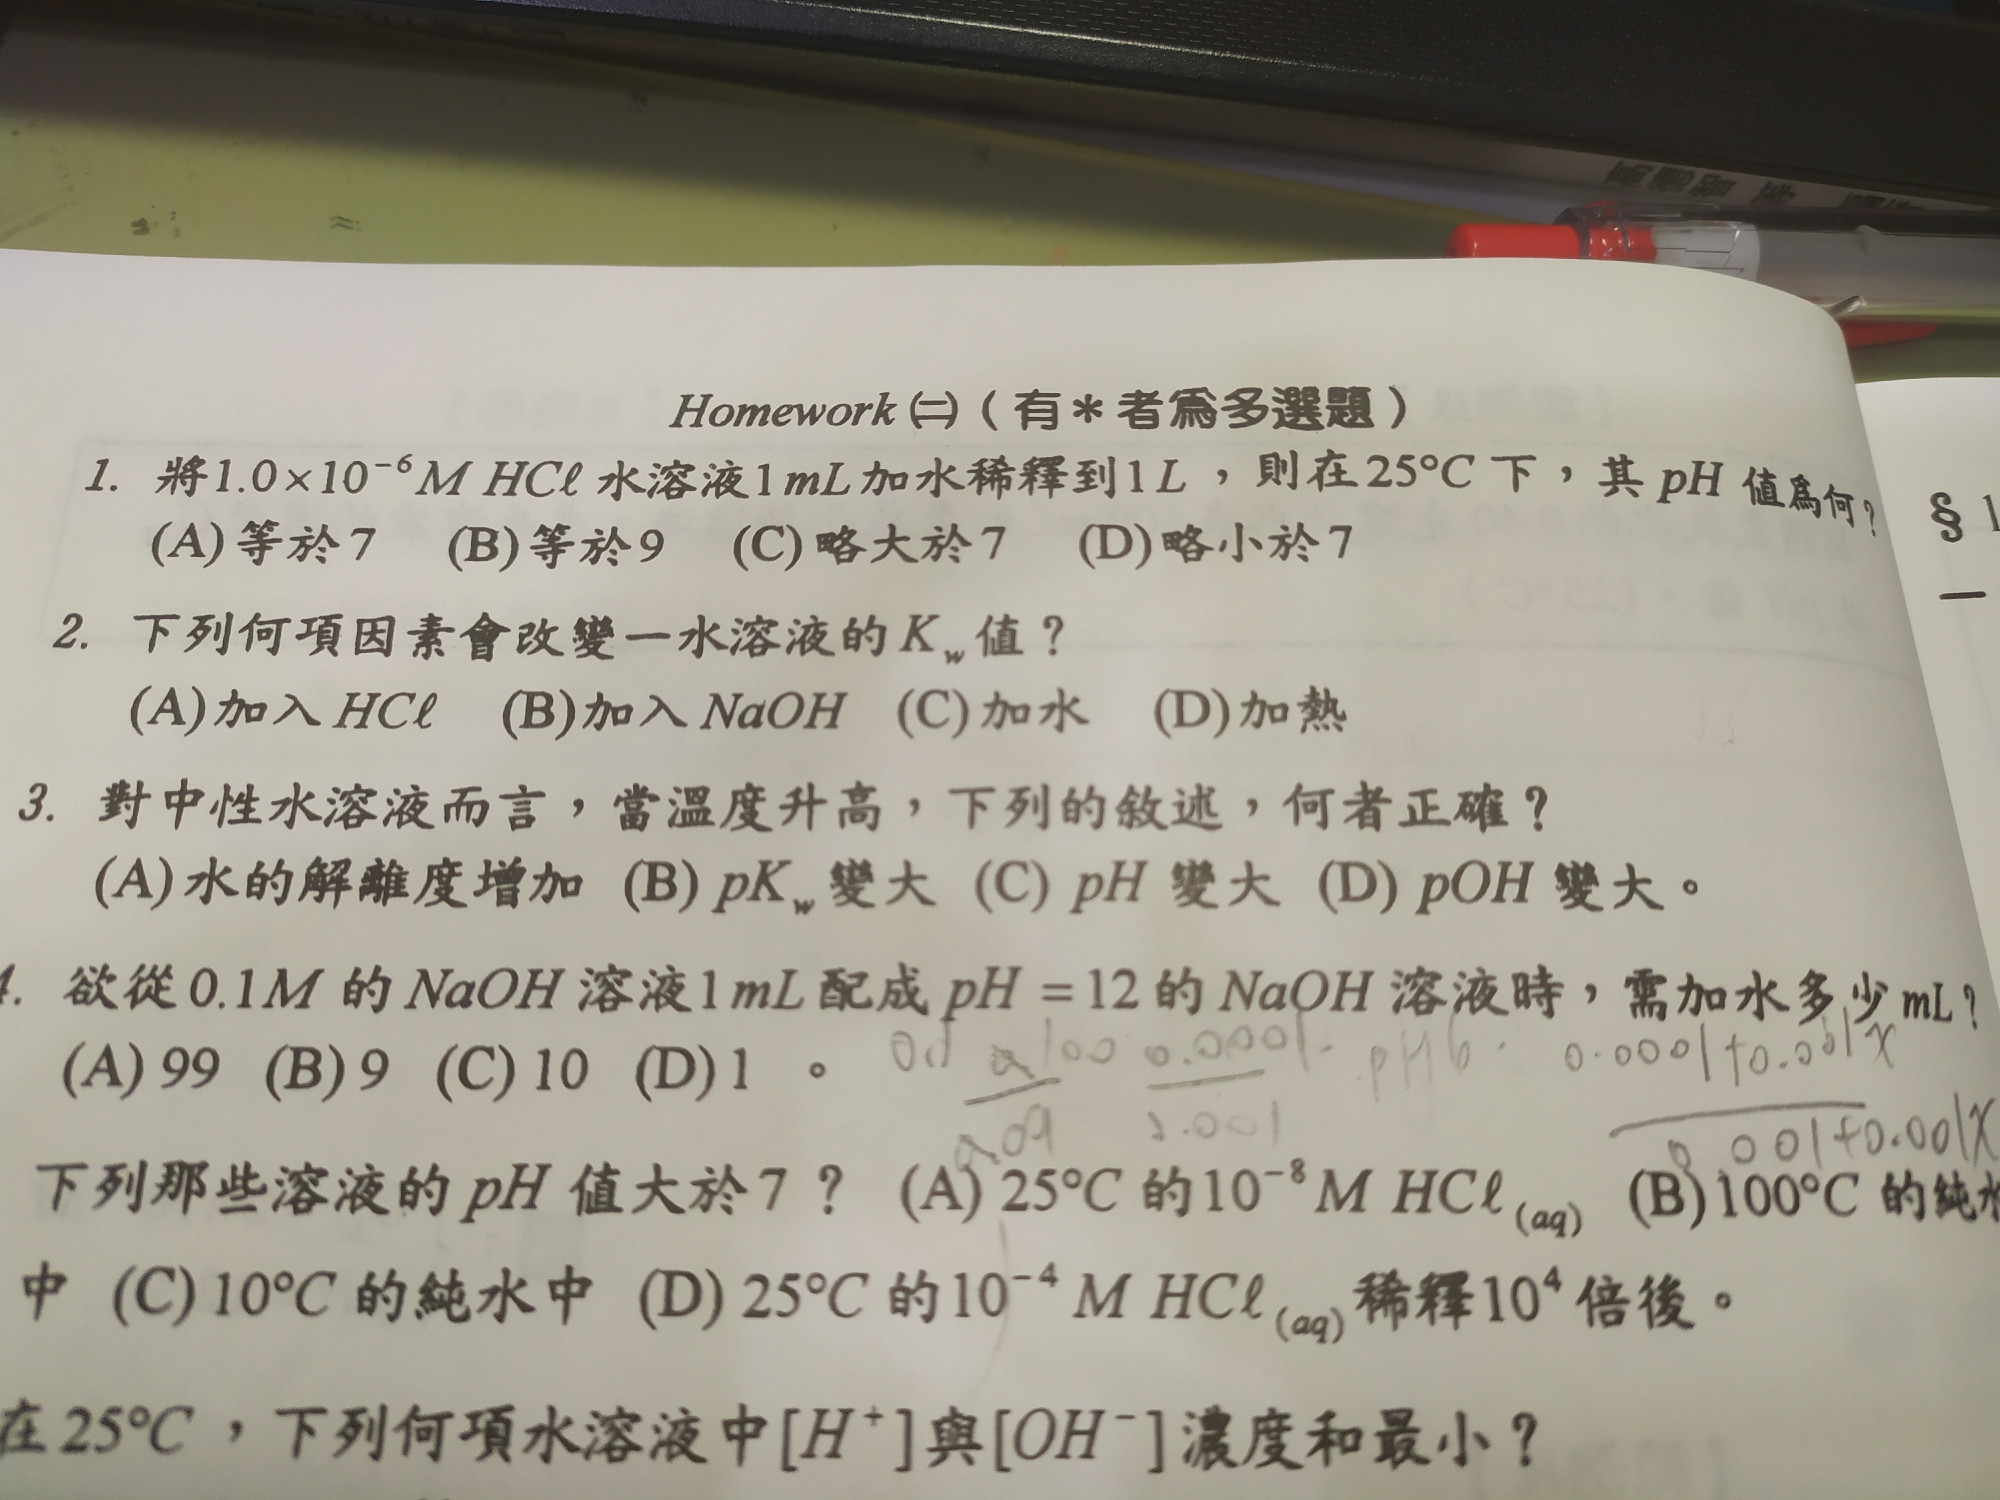 Homework ㈡ ( 有＊者為多選題 )
1. 將1.0×10⁻⁶M HCℓ 水溶液1mL加水稀釋到1L，則在25°C下，其pH值為何？
(A)等於7 (B)等於9 (C)略大於7 (D)略小於7
2. 下列何項因素會改變一水溶液的Kw值？
(A)加入HCℓ (B)加入NaOH (C)加水 (D)加熱
3. 對中性水溶液而言，當溫度升高，下列的敘述，何者正確？
(A)水的解離度增加 (B) pKw變大 (C) pH 變大 (D) pOH 變大。
4. 欲從0.1M 的NaOH 溶液1mL配成pH =12的NaOH 溶液時，需加水多少mL？
(A)99 (B)9 (C)10 (D)1 。
0.0001+0.001x
0.001+0.001x
下列那些溶液的pH 值大於7？ (A) 25°C的10⁻⁸M HCℓ(aq) (B)100°C的純水
中 (C)10°C的純水中 (D) 25°C的10⁻⁴ M HCℓ(aq)稀釋10⁴倍後。
在25°C，下列何項水溶液中[H⁺]與[OH⁻]濃度和最小？
§ 1
一